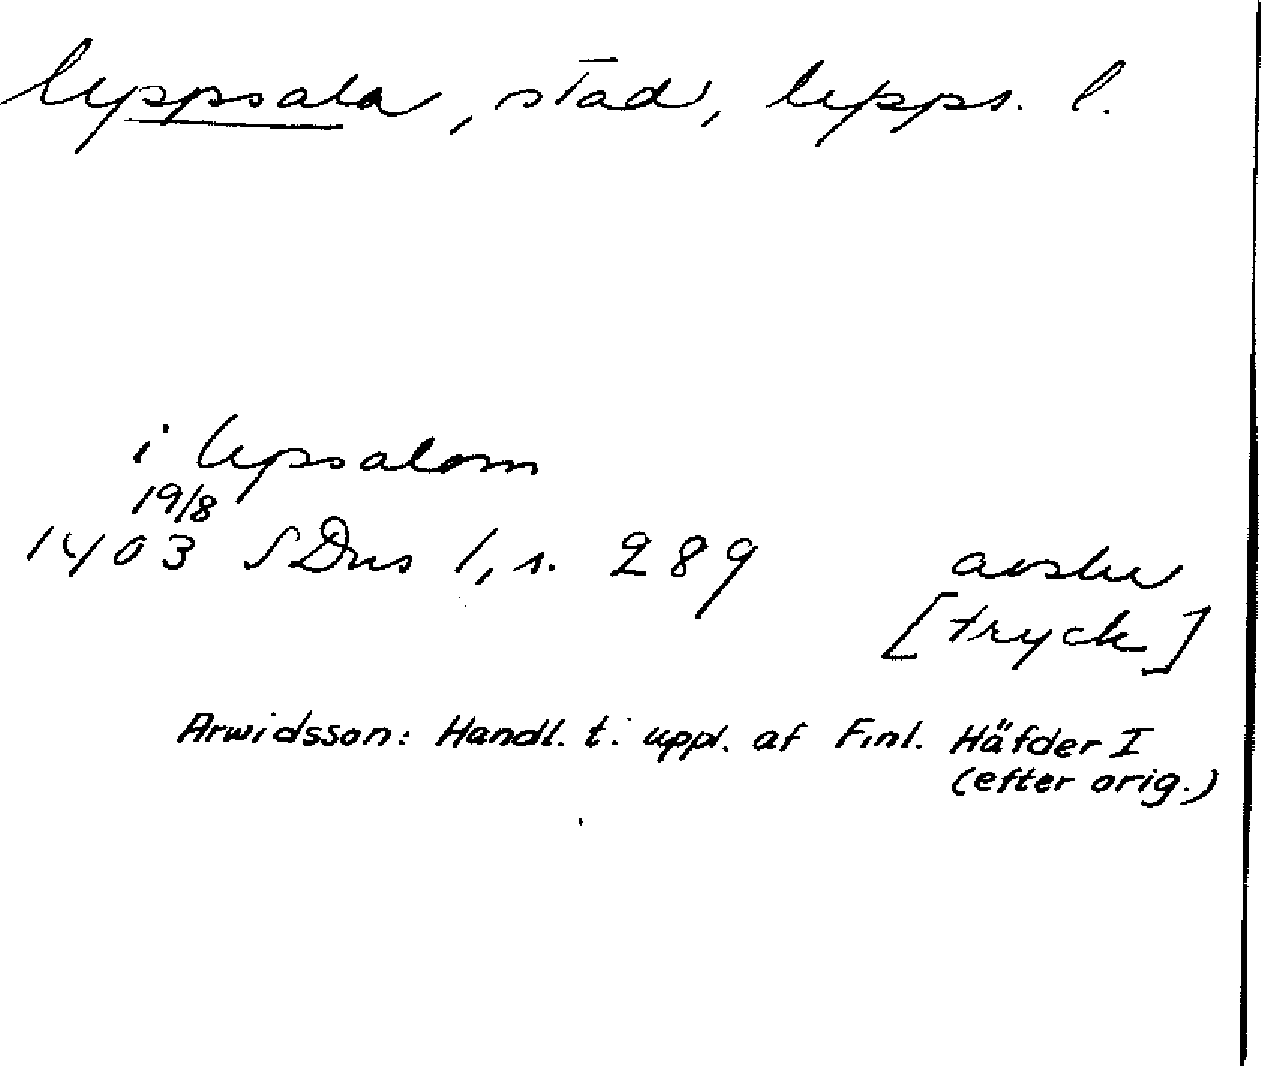 Uppsala, stad, Upps. l.
i Upsalom
19/8
1403 SDns 1, s. 289 avskr
[tryck]
Arwidsson: Handl. t. uppl. af Finl. Häfder I
(efter orig.)